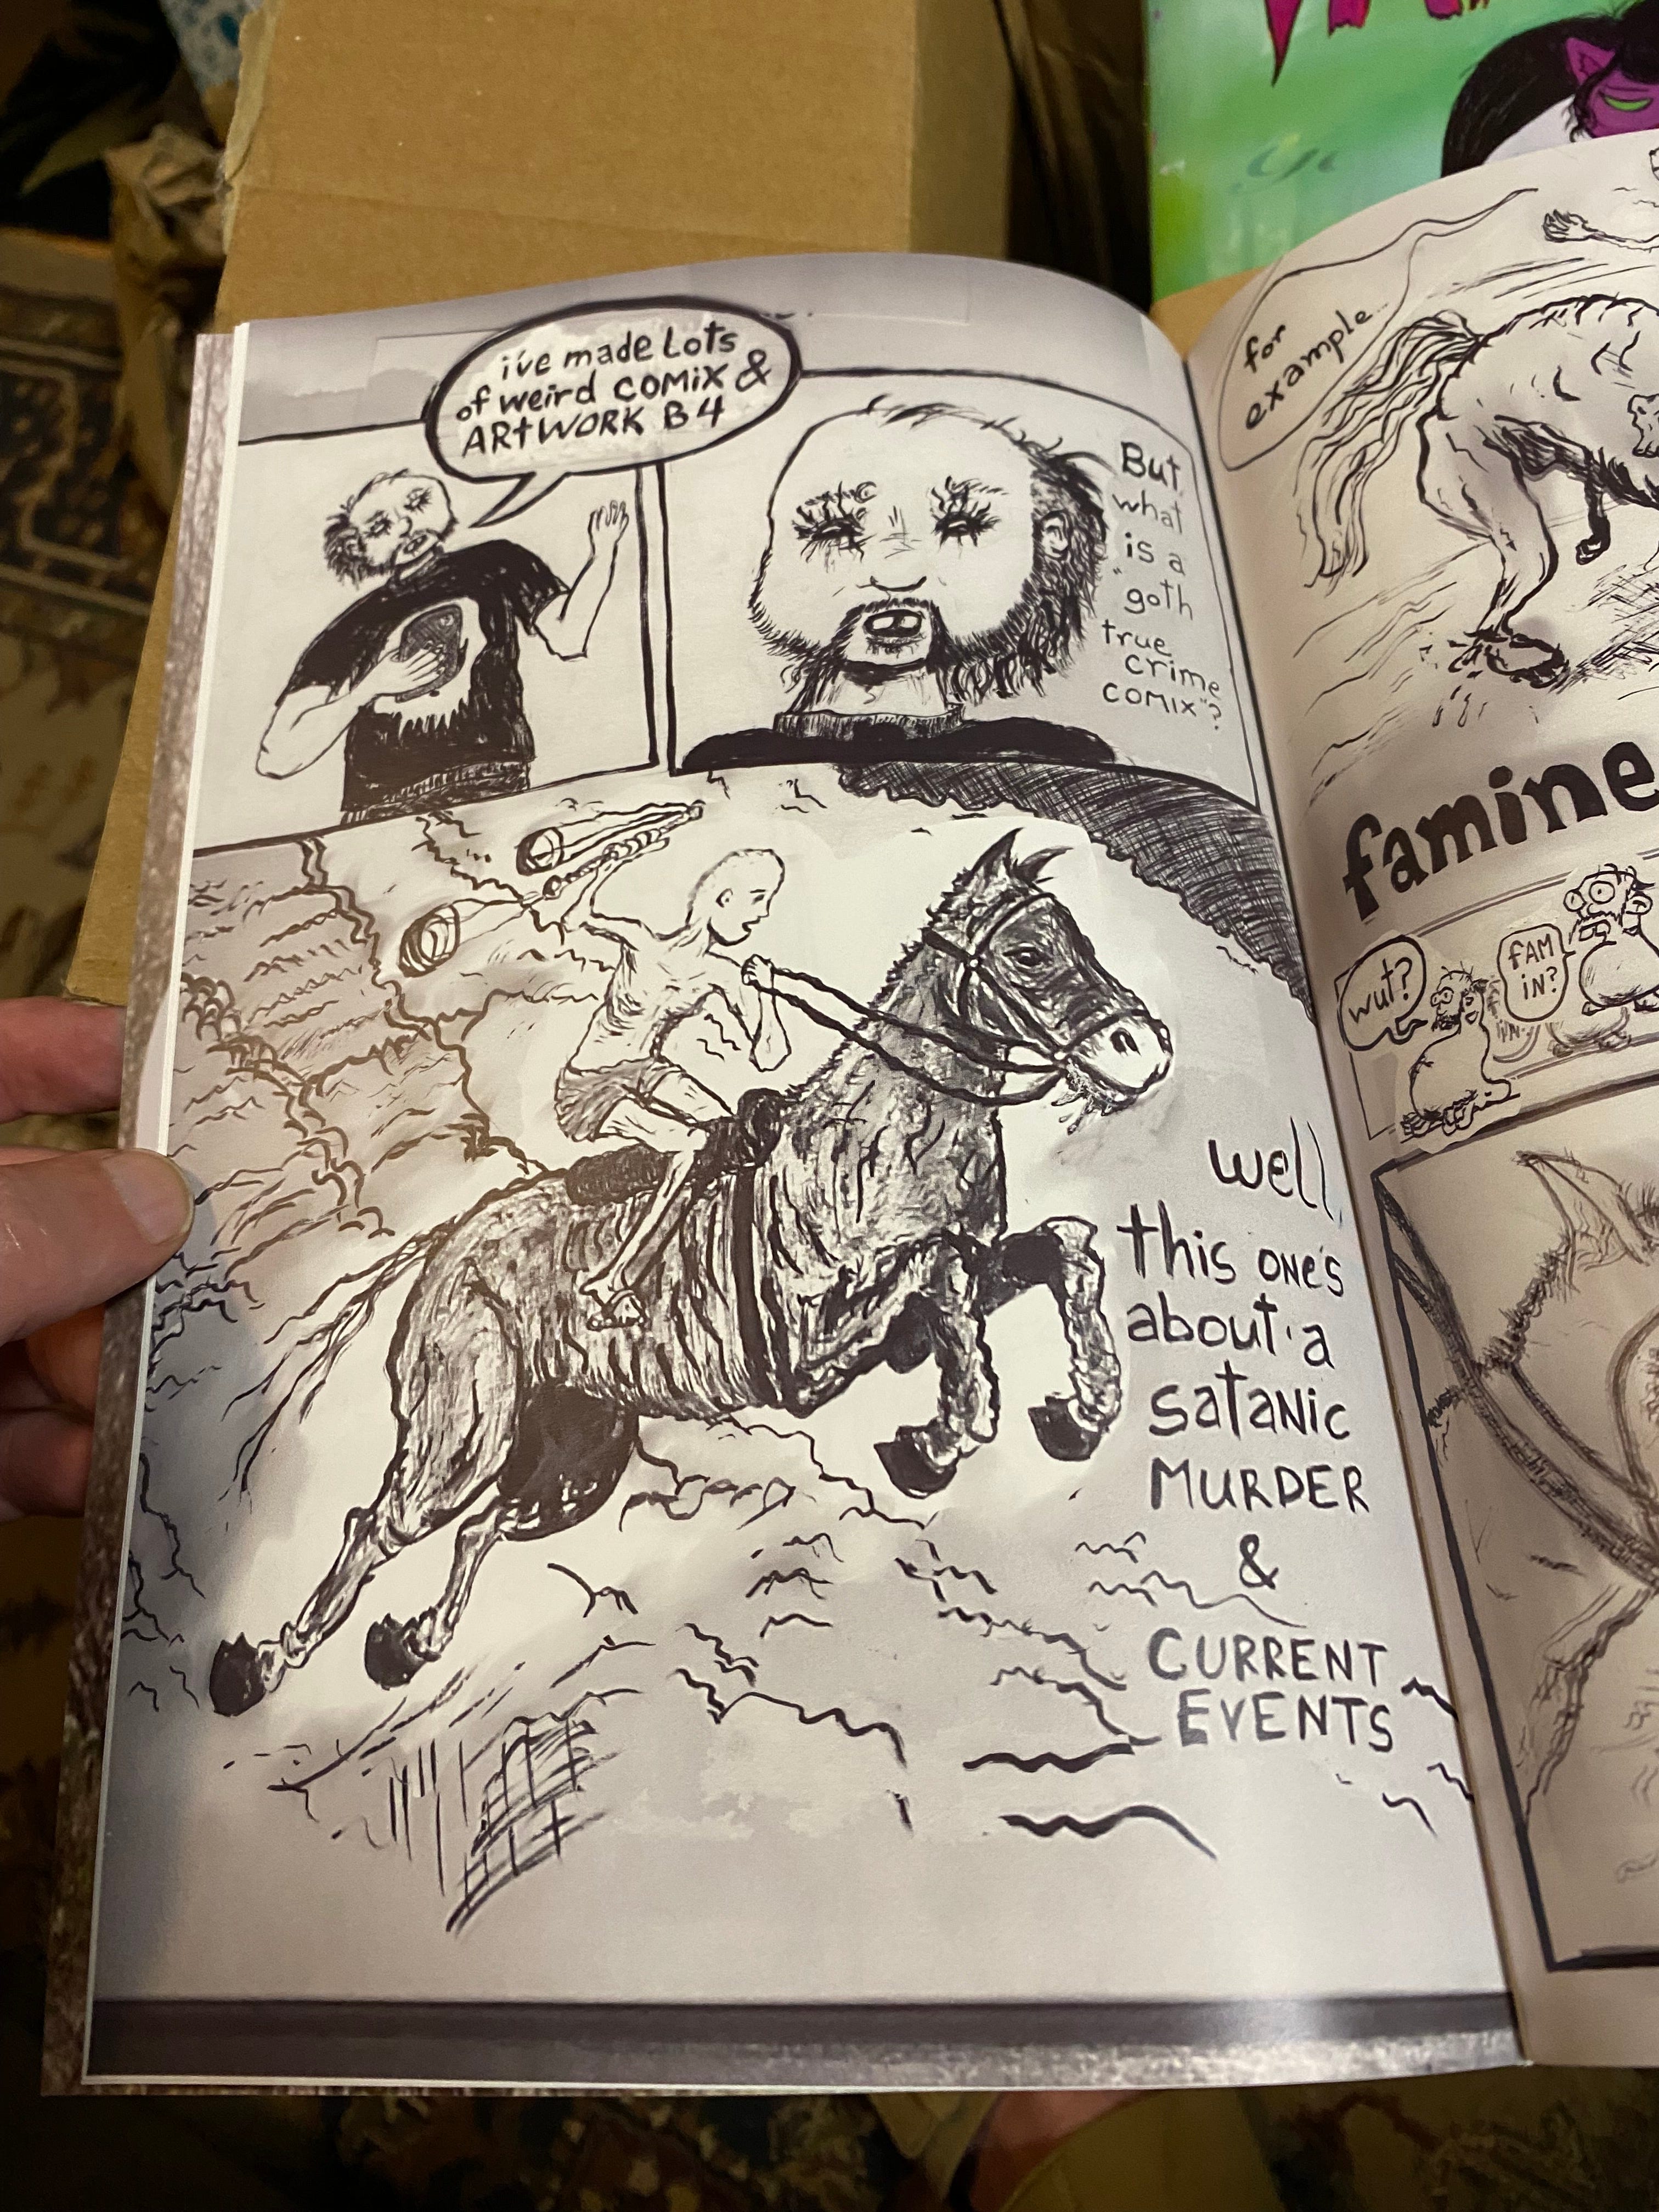 i've made Lots
of weird COMiX &
ARtWORK B4
But
what
is a
"goth
true
crime
comix"?
well,
this one's
about a
satanic
MURDER
&
CURRENT
EVENTS
for
example..
famine
wut?
FAM
IN?